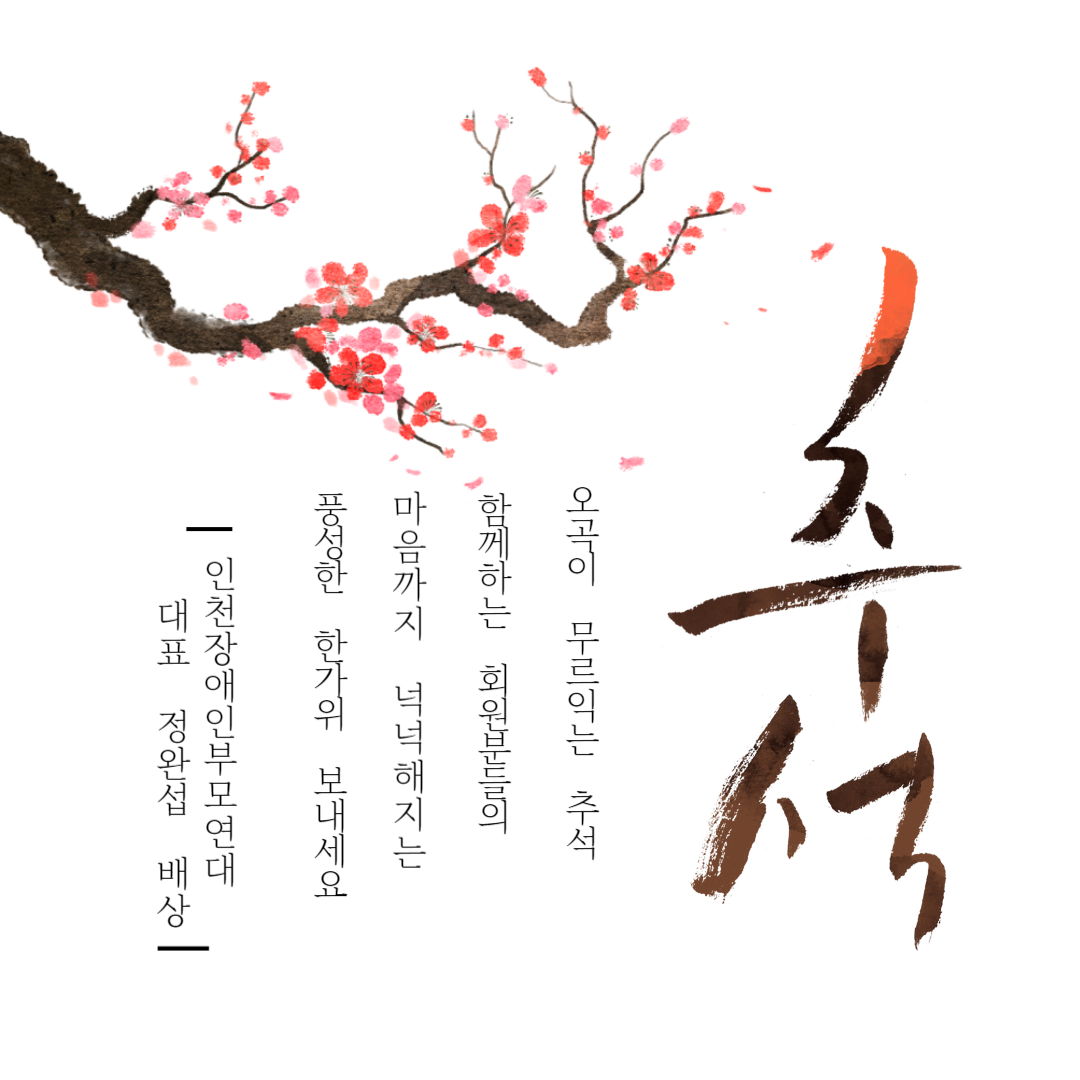 추석
오곡이 무르익는 추석
함께하는 회원분들의
마음까지 넉넉해지는
풍성한 한가위 보내세요
인천장애인부모연대
대표 정완섭 배상